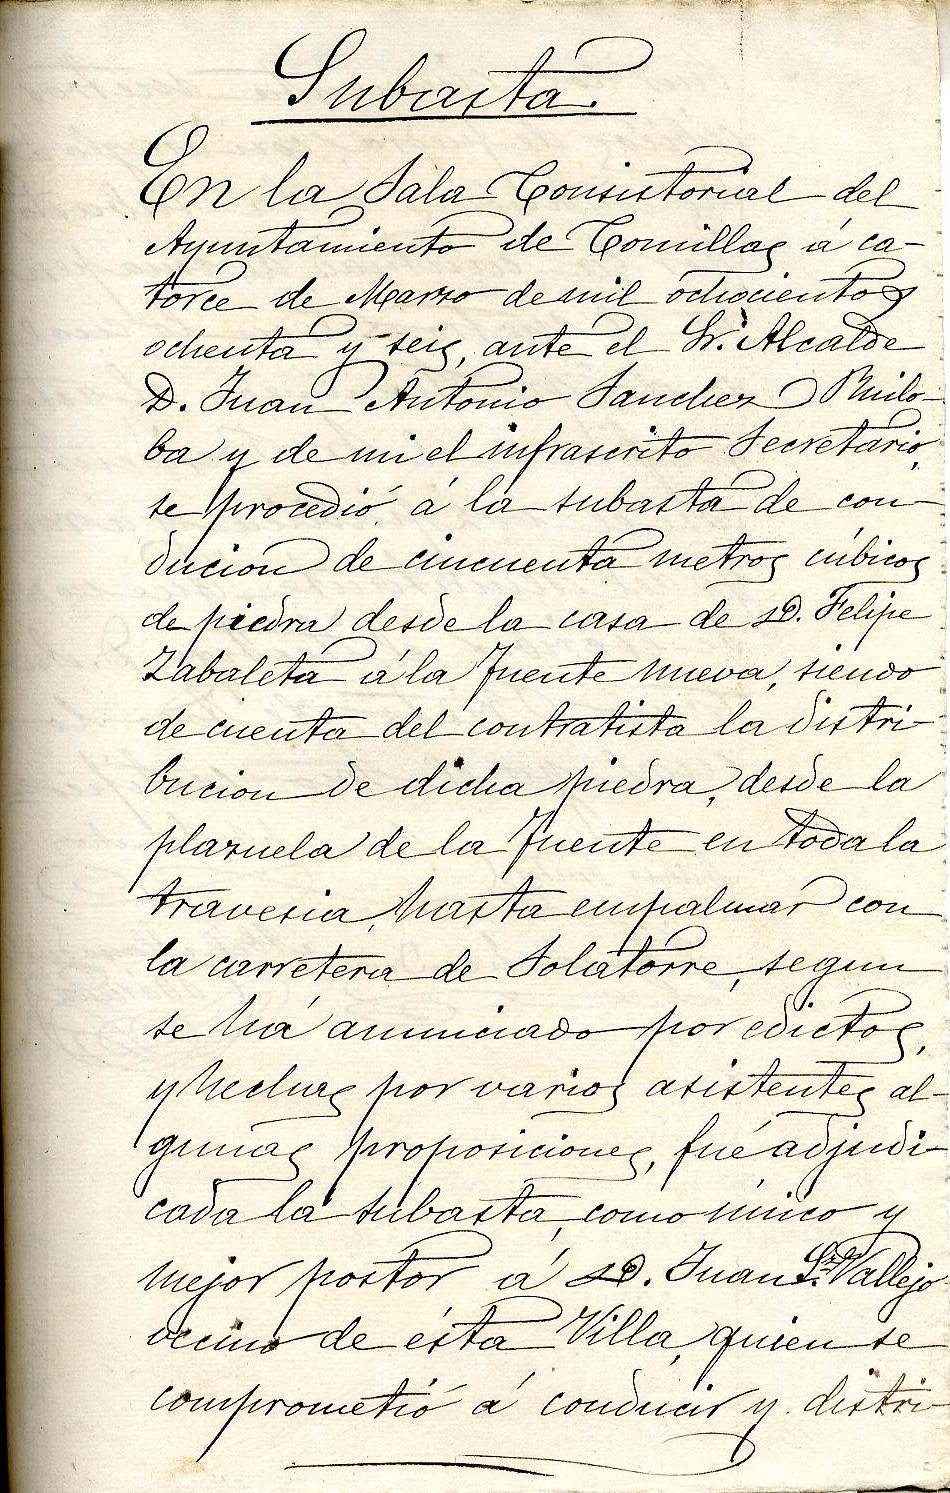 Subasta.
En la Sala Consistorial del
Ayuntamiento de Comillas á ca-
torce de Marzo de mil ochocientos
ochenta y seis, ante el Sr. Alcalde
D. Juan Antonio Sanchez Ruilo-
ba y de mi el infrascrito Secretario,
se procedió á la subasta de con-
ducion de cincuenta metros cúbicos
de piedra desde la casa de D. Felipe
Zabaleta á la fuente nueva, siendo
de cuenta del contratista la distri-
bucion de dicha piedra, desde la
plazuela de la fuente en toda la
travesia, hasta empalmar con
la carretera de Solatorre, segun
se há anunciado por edictos,
y hechas por varios asistentes al-
gunas proposiciones, fué adjudi-
cada la subasta, como único y
mejor postor á D. Juan Sz. Vallejo
vecino de ésta Villa, quien se
comprometió á conducir y distri-